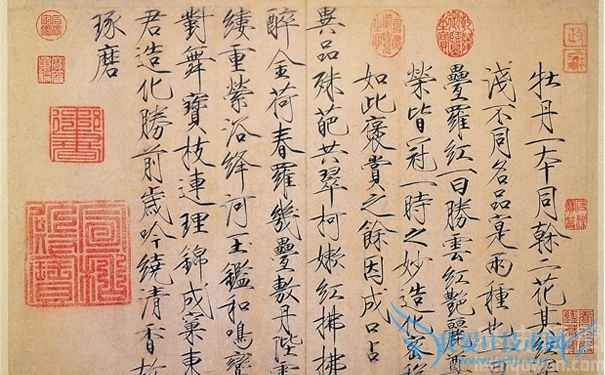 牡丹一本同幹二花其
淺不同名品寔兩種也
疊羅紅一曰勝雲紅艷麗尊
榮皆冠一時之妙造化密移
如此褒賞之餘因成口占
異品殊葩共翠柯嫩紅拂拂
醉金荷春羅幾疊敷丹陛雲
縷重縈浴絳河玉鑑和鳴鸞
對舞寶枝連理錦成窠東
君造化勝前歲吟繞清香故
琢磨